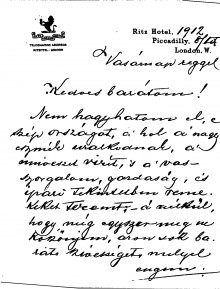 TELEGRAPHIC ADDRESS
Ritz Hotel, 1912
Piccadilly,
London, W.
Vasárnap reggel
Kedves barátom!
Nem hagyhatom el, e
szép országot, a hol a nagy
eszmék uralkodnak, a
művészet virít, s a vas-
szorgalom, gazdaság, és
ipari tekintetben reme-
keket teremt, a nélkül
hogy még egyszer meg ne
köszönjem, azon sok ba-
ráti szívességet, melyel
engem